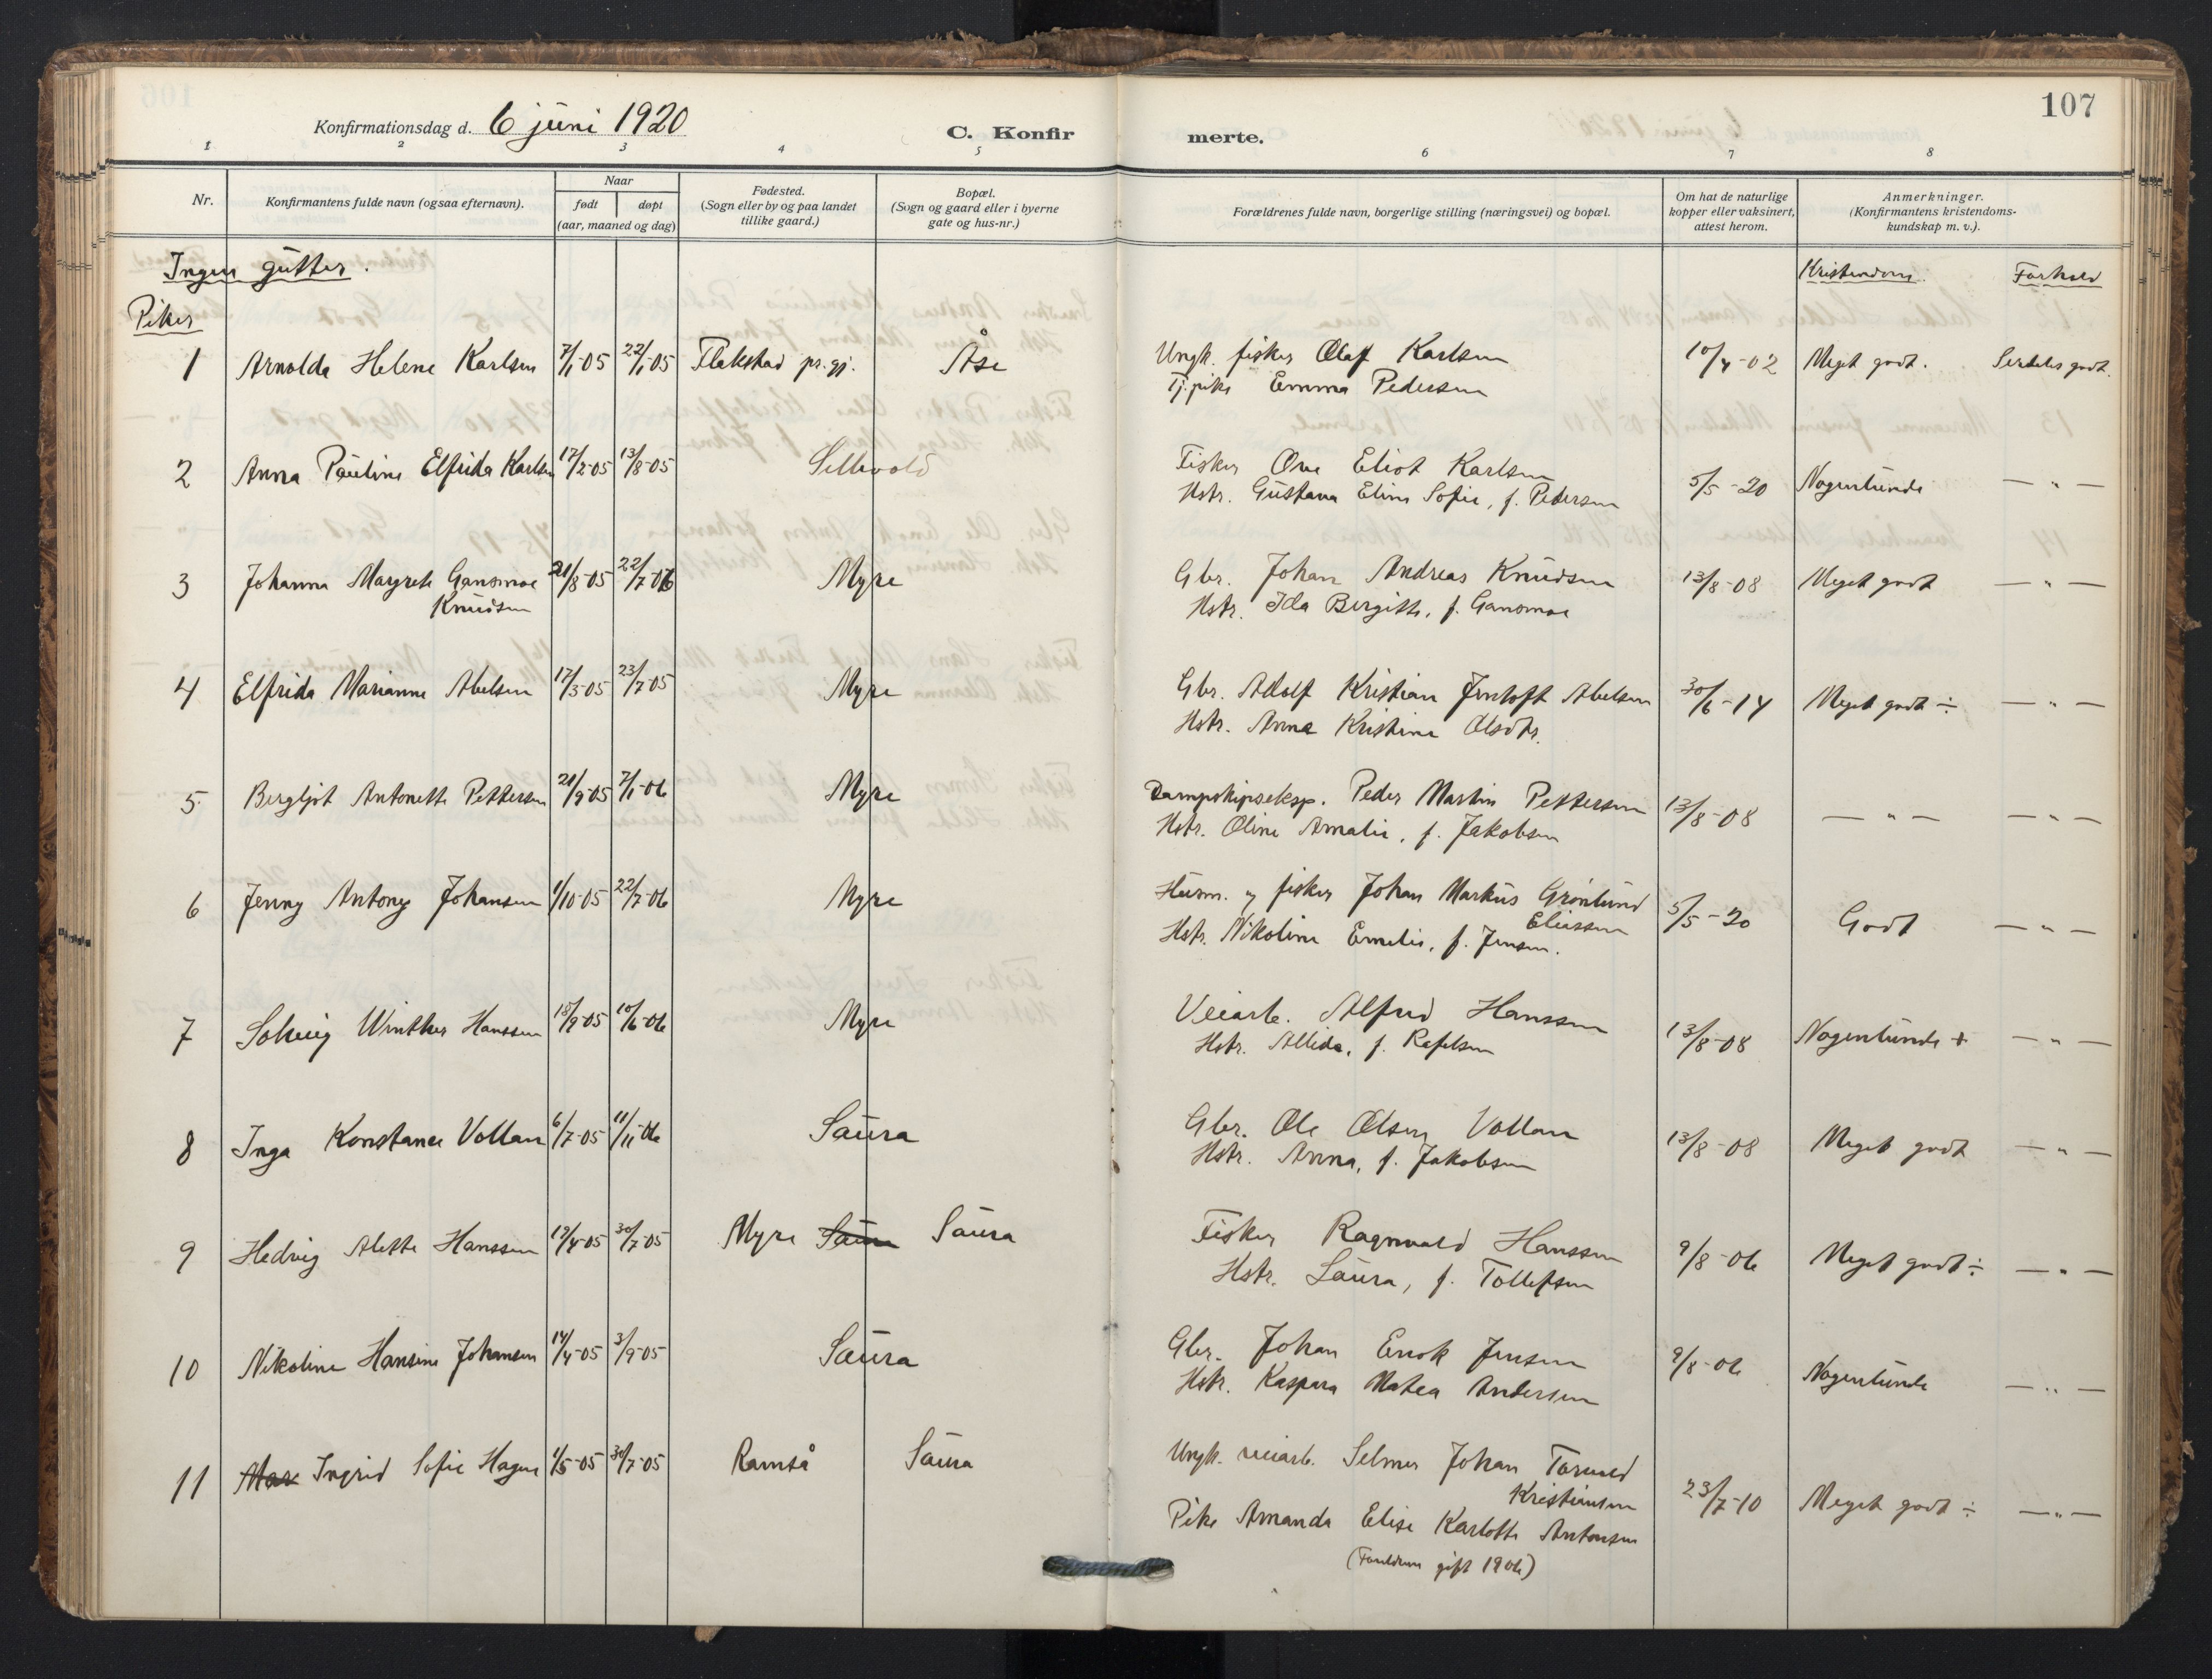 107
Konfirmationsdag d. 6 juni 1920
C. Konfirmerte.
1 2 3 4 5 6 7 8
Nr.
Konfirmantens fulde navn (ogsaa efternavn).
Naar
født
døpt
(aar, maaned og dag)
Fødested.
(Sogn eller by og paa landet
tillike gaard.)
Bopæl.
(Sogn og gaard eller i byerne
gate og hus-nr.)
Forældrenes fulde navn, borgerlige stilling (næringsvei) og bopæl.
Om hat de naturlige
kopper eller vaksinert,
attest herom.
Anmerkninger.
(Konfirmantens kristendoms-
kundskap m. v.).
Ingen gutter.
Kristendom. Forhold
Piker
1 Arnolda Helene Karlsen 7/1-05 22/1-05 Flakstad pr.gj. Åse Ungk. fisker Olaf Karlsen 10/4-02 Meget godt. Serdeles godt.
Tj.pike Emma Pedersen
2 Anna Pauline Elfrida Karlsen 17/2-05 13/8-05 Sellevold Fisker Ove Eliot Karlsen 5/5-20 Nogenlunde — " —
Hstr. Gustava Eline Sofie, f. Pedersen
3 Johanna Margrete Gansmoe 21/8-05 22/7-06 Myre Gbr. Johan Andreas Knudsen 13/8-08 Meget godt — " —
Knudsen Hstr. Ida Bergitte, f. Gansmoe
4 Elfrida Marianne Abelsen 17/3-05 23/7-05 Myre Gbr. Adolf Kristian Jentoft Abelsen 30/6-14 Meget godt ÷ — " —
Hstr. Anna Kristine Olsdtr.
5 Bergljot Antonette Pettersen 21/9-05 7/1-06 Myre Dampskipseksp. Peder Martin Pettersen 13/8-08 — " — — " —
Hstr. Oline Amalie, f. Jakobsen
6 Jenny Antony Johansen 1/10-05 22/7-06 Myre Husm. og fisker Johan Markus Grønlund 5/5-20 Godt — " —
Eliassen
Hstr. Nikoline Emelie, f. Jensen.
7 Solveig Winther Hanssen 18/9-05 10/6-06 Myre Veiarb. Alfred Hanssen 13/8-08 Nogenlunde + — " —
Hstr. Allida, f. Rafelsen
8 Inga Konstance Vollan 6/7-05 11/11-06 Saura Gbr. Ole Olsen Vollan 13/8-08 Meget godt — " —
Hstr. Anna, f. Jakobsen
9 Hedvig Alette Hanssen 12/4-05 30/7-05 Myre Saura Saura Fisker Ragnvald Hanssen 9/8-06 Meget godt ÷ — " —
Hstr. Laura, f. Tollefsen
10 Nikoline Hansine Johansen 14/4-05 3/9-05 Saura Gbr. Johan Enok Jensen 9/8-06 Nogenlunde — " —
Hstr. Kaspara Matea Andersen
11 Mar Ingrid Sofie Hagen 1/5-05 30/7-05 Ramså Saura Ungk. veiarb. Selmer Johan Torvald 23/7-10 Meget godt ÷ — " —
Kristiansen
Pike Amanda Elise Karlotte Antonsen
(Foreldrene gift 1906)